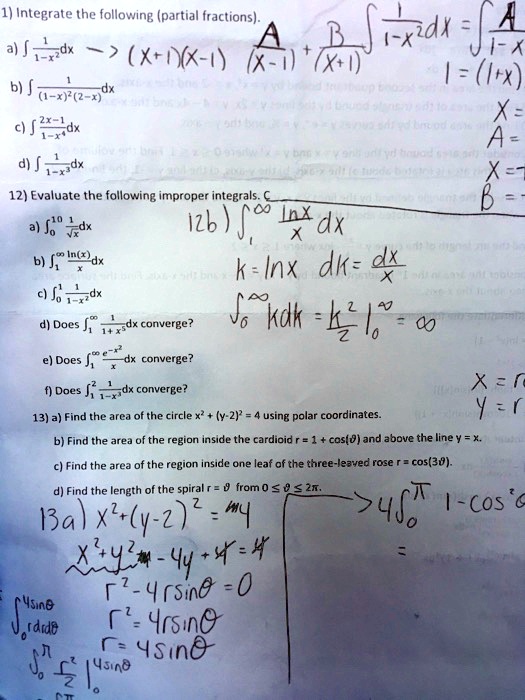 1) Integrate the following (partial fractions).
a) ∫ 1/(1-x²) dx -> (x+1)(x-1) A/(x-1) + B/(x+1) ∫ 1/(1-x²) dx = ∫ A/(1-x
1 = (1+x)
b) ∫ 1/((1-x)²(2-x)) dx
X =
c) ∫ (2x-1)/(1-x⁴) dx
A =
d) ∫ 1/(1-x³) dx
X = -
B =
12) Evaluate the following improper integrals.
a) ∫₀¹⁰ 1/√x dx
12b) ∫₁^∞ lnx/x dx
b) ∫₁^∞ ln(x)/x dx
k = lnx dk = dx/x
c) ∫₀¹ 1/(1-x²) dx
∫₀^∞ kdk = k²/2 |₀^∞ = ∞
d) Does ∫₁^∞ 1/(1+x⁵) dx converge?
e) Does ∫₁^∞ e^(-x²)/x dx converge?
f) Does ∫₁² 1/(1-x³) dx converge?
X = r
y = r
13) a) Find the area of the circle x² + (y-2)² = 4 using polar coordinates.
b) Find the area of the region inside the cardioid r = 1 + cos(θ) and above the line y = x.
c) Find the area of the region inside one leaf of the three-leaved rose r = cos(3θ).
d) Find the length of the spiral r = θ from 0 ≤ θ ≤ 2π.
13a) x²+(y-2)² = 4
x²+y² - 4y + 4 = 4
r² - 4rsinθ = 0
r² = 4rsinθ
r = 4sinθ
∫₀^(4sinθ) rdrdθ
∫₀^π r²/2 |₀^(4sinθ)
-> 4∫₀^π 1-cos²
=